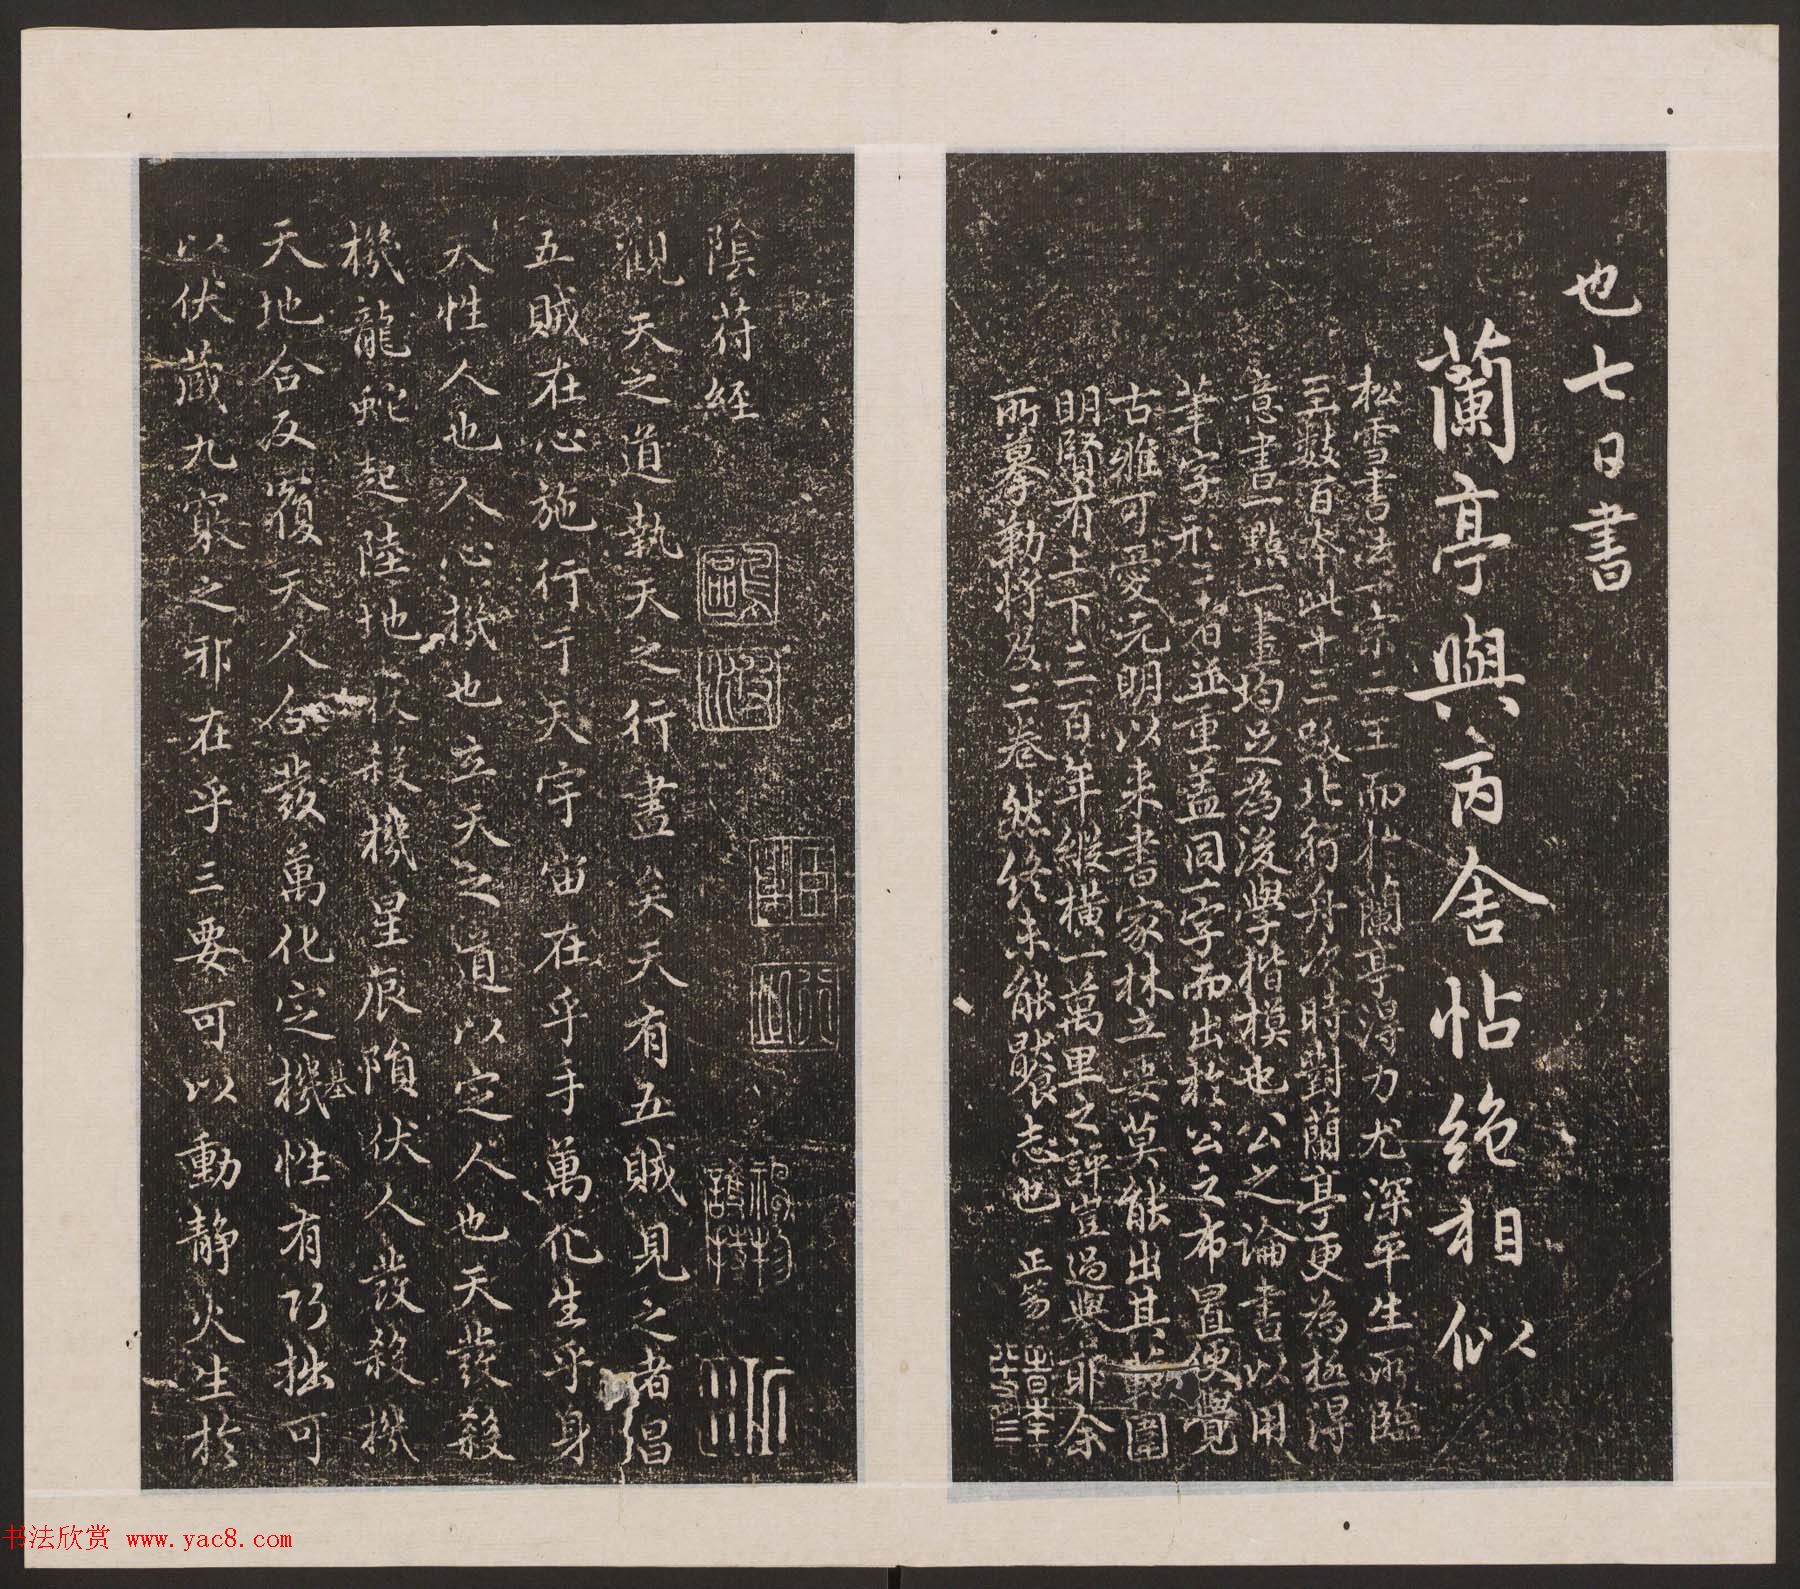 也七日書
蘭亭與丙舍帖絶相似
松雪書法一宗二王而於蘭亭得力尤深平生所臨
至數百本此十三跋北行舟次時對蘭亭更為極得
意書一點一畫均足為後學楷模也公之論書以用
筆字形二者並重蓋同一字而出於公之布置便覺
古雅可愛元明以来書家林立要莫能出其範圍
明賢有上下三百年縱橫一萬里之許豈過與耶余
所摹勒將及二卷然終未能饜志也
陰符經
觀天之道執天之行盡矣天有五賊見之者昌
五賊在心施行于天宇宙在乎手萬化生乎身
天性人也人心機也立天之道以定人也天發殺
機龍蛇起陸地發殺機星辰隕伏人發殺機
天地合反覆天人合發萬化定機基性有巧拙可
以伏藏九竅之邪在乎三要可以動静火生於
书法欣赏 www.yac8.com